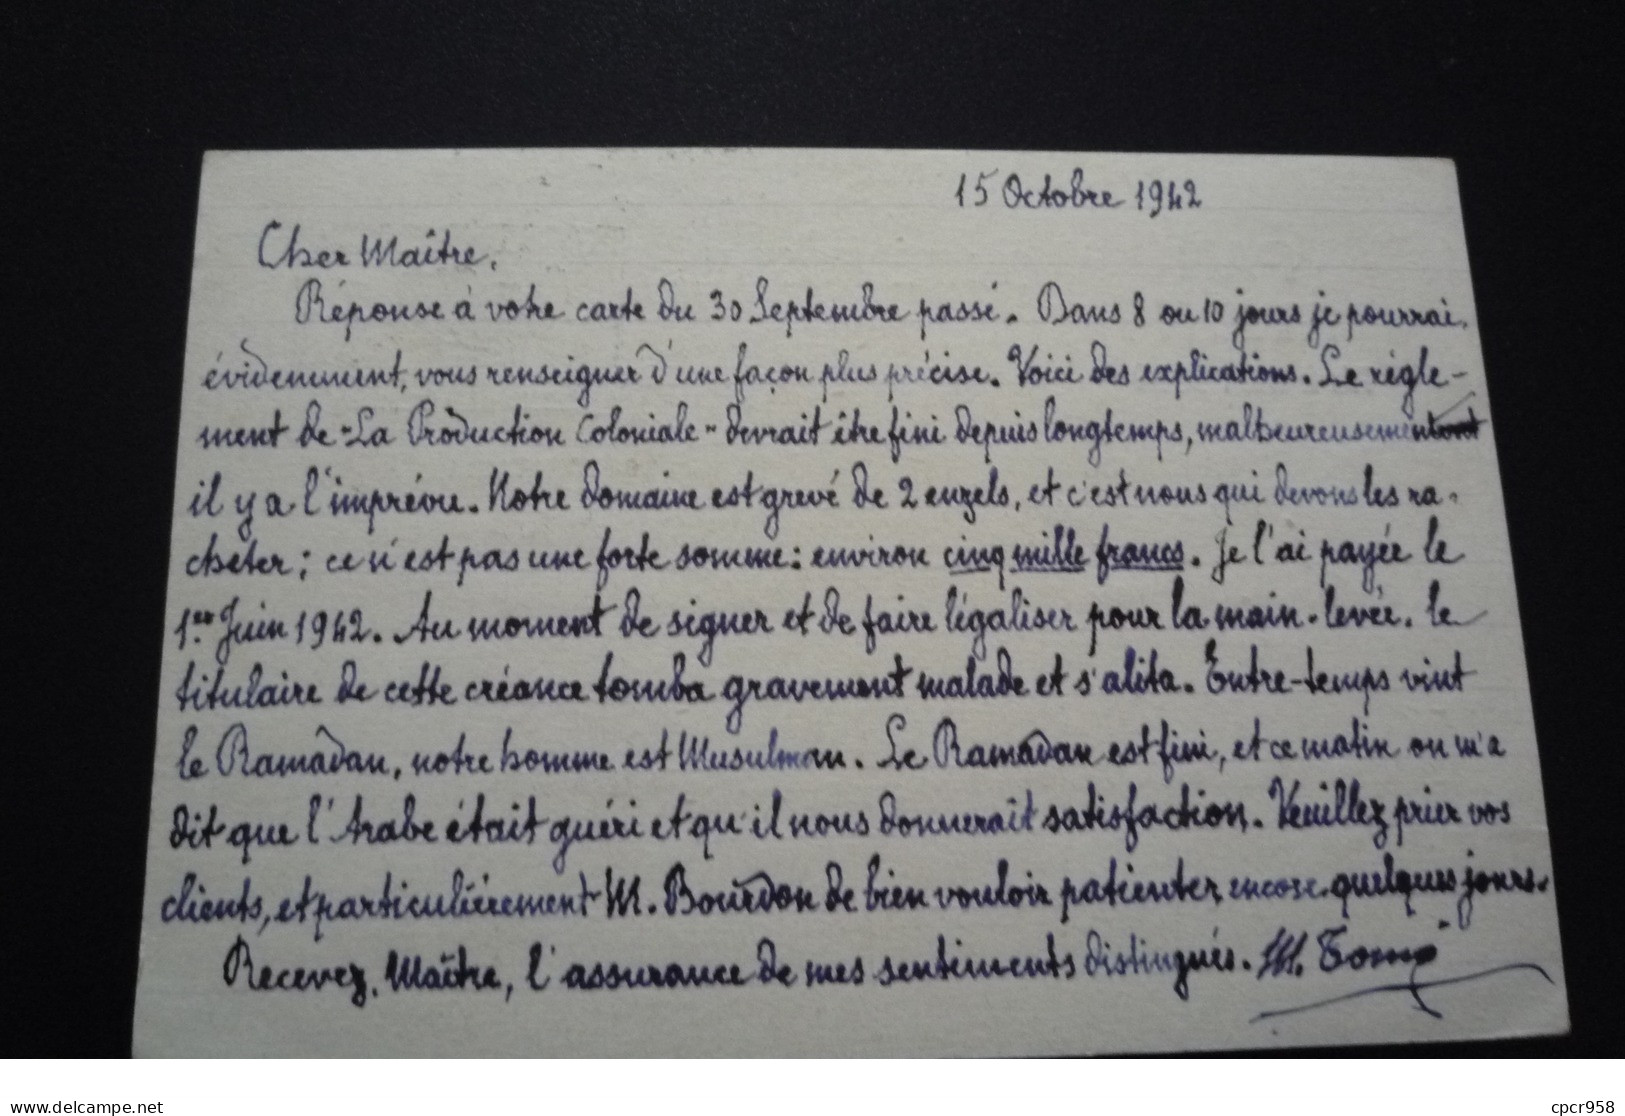 15 Octobre 1942
Cher Maître.
Réponse à votre carte du 30 Septembre passé. Dans 8 ou 10 jours je pourrai,
évidemment, vous renseigner d'une façon plus précise. Voici des explications. Le règle-
ment de "La Production Coloniale" devrait être fini depuis longtemps, malheureusement
il y a l'imprévu. Notre domaine est grevé de 2 enzels, et c'est nous qui devons les ra-
cheter; ce n'est pas une forte somme: environ cinq mille francs. Je l'ai payée le
1er Juin 1942. Au moment de signer et de faire légaliser pour la main-levée, le
titulaire de cette créance tomba gravement malade et s'alita. Entre-temps vint
le Ramadan, notre homme est Musulman. Le Ramadan est fini, et ce matin on m'a
dit que l'Arabe était guéri et qu'il nous donnerait satisfaction. Veuillez prier vos
clients, et particulièrement M. Bourdon de bien vouloir patienter encore quelques jours.
Recevez, Maître, l'assurance de mes sentiments distingués. M.
delcampe.net
cpcr958